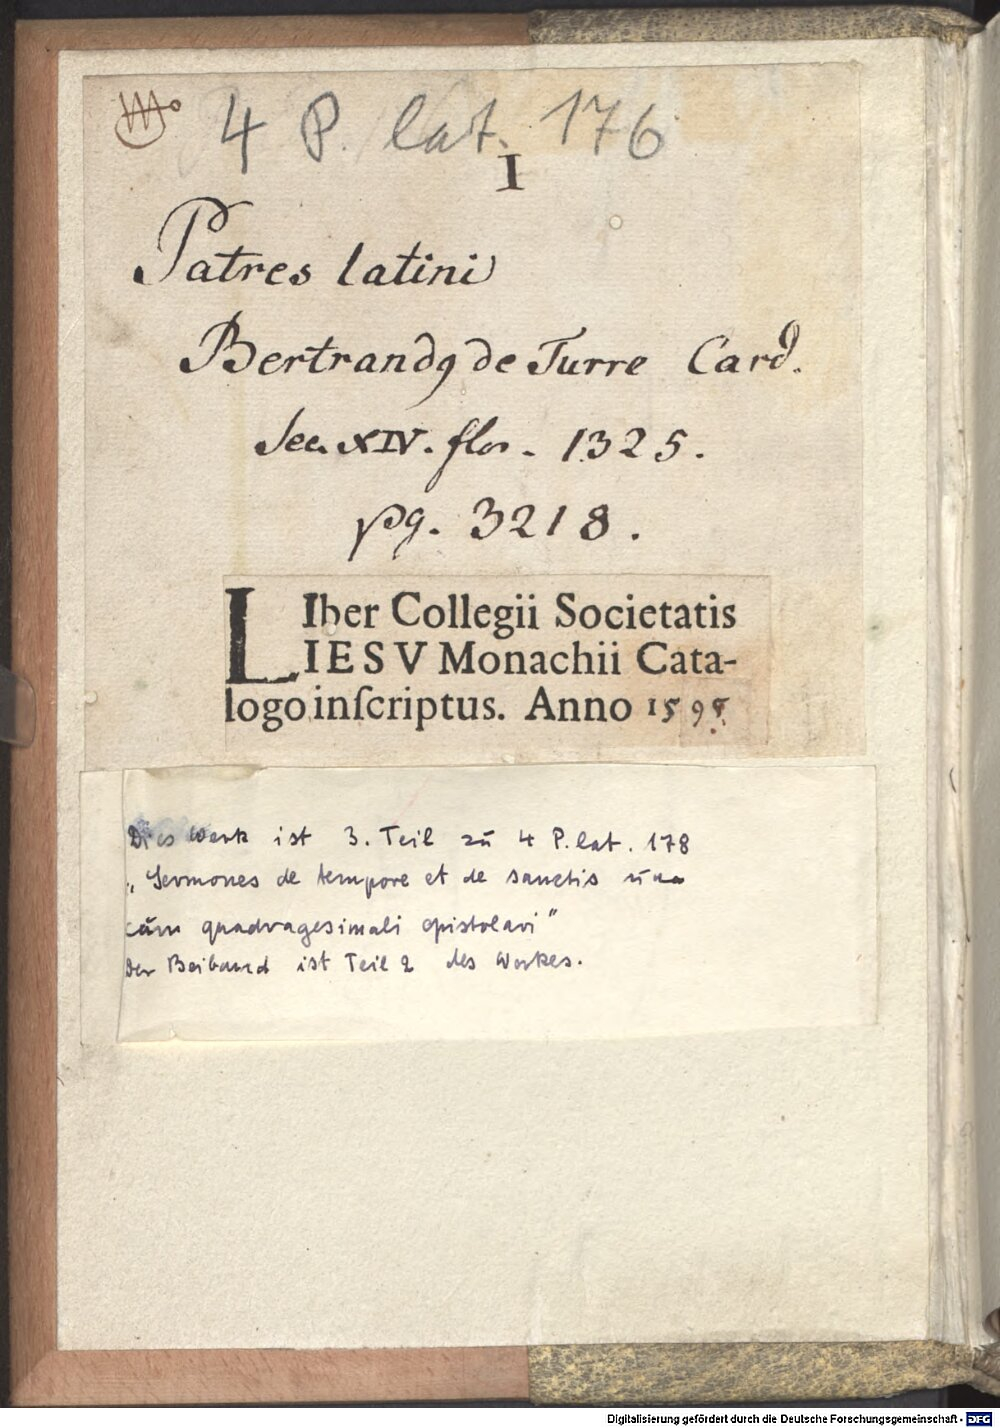 4 P. lat. 176
I
Patres latini
Bertrandꝯ de Turre Card.
Sec. XIV. flor. 1325.
pg. 3218.
LIber Collegii Societatis
IESV Monachii Cata-
logo inſcriptus. Anno 1595
Dies Werk ist 3. Teil zu 4 P. lat. 178
„Sermones de tempore et de sanctis una
cum quadragesimali epistolari"
Der Beiband ist Teil 2 des Werkes.
Digitalisierung gefördert durch die Deutsche Forschungsgemeinschaft - DFG